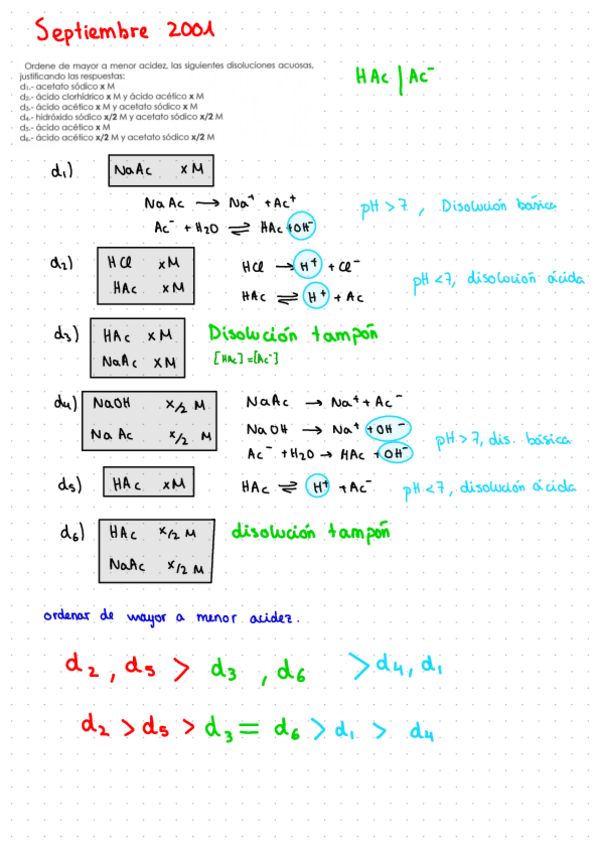 Septiembre 2001
Ordene de mayor a menor acidez, las siguientes disoluciones acuosas,
justificando las respuestas:
d₁.- acetato sódico x M
d₂.- ácido clorhídrico x M y ácido acético x M
d₃.- ácido acético x M y acetato sódico x M
d₄.- hidróxido sódico x/2 M y acetato sódico x/2 M
d₅.- ácido acético x M
d₆.- ácido acético x/2 M y acetato sódico x/2 M
HAc | Ac⁻
d₁) NaAc xM
NaAc → Na⁺ + Ac⁺
Ac⁻ + H₂O ⇌ HAc + OH⁻
pH > 7 , Disolución básica
d₂) HCl xM
HAc xM
HCl → H⁺ + Cl⁻
HAc ⇌ H⁺ + Ac
pH < 7, disolución ácida
d₃) HAc xM
NaAc xM
Disolución tampón
[HAc] = [Ac⁻]
d₄) NaOH x/2 M
NaAc x/2 M
NaAc → Na⁺ + Ac⁻
NaOH → Na⁺ + OH⁻
Ac⁻ + H₂O → HAc + OH⁻
pH > 7, dis. básica
d₅) HAc xM
HAc ⇌ H⁺ + Ac⁻
pH < 7, disolución ácida
d₆) HAc x/2 M
NaAc x/2 M
disolución tampón
ordenar de mayor a menor acidez.
d₂, d₅ > d₃, d₆ > d₄, d₁
d₂ > d₅ > d₃ = d₆ > d₁ > d₄